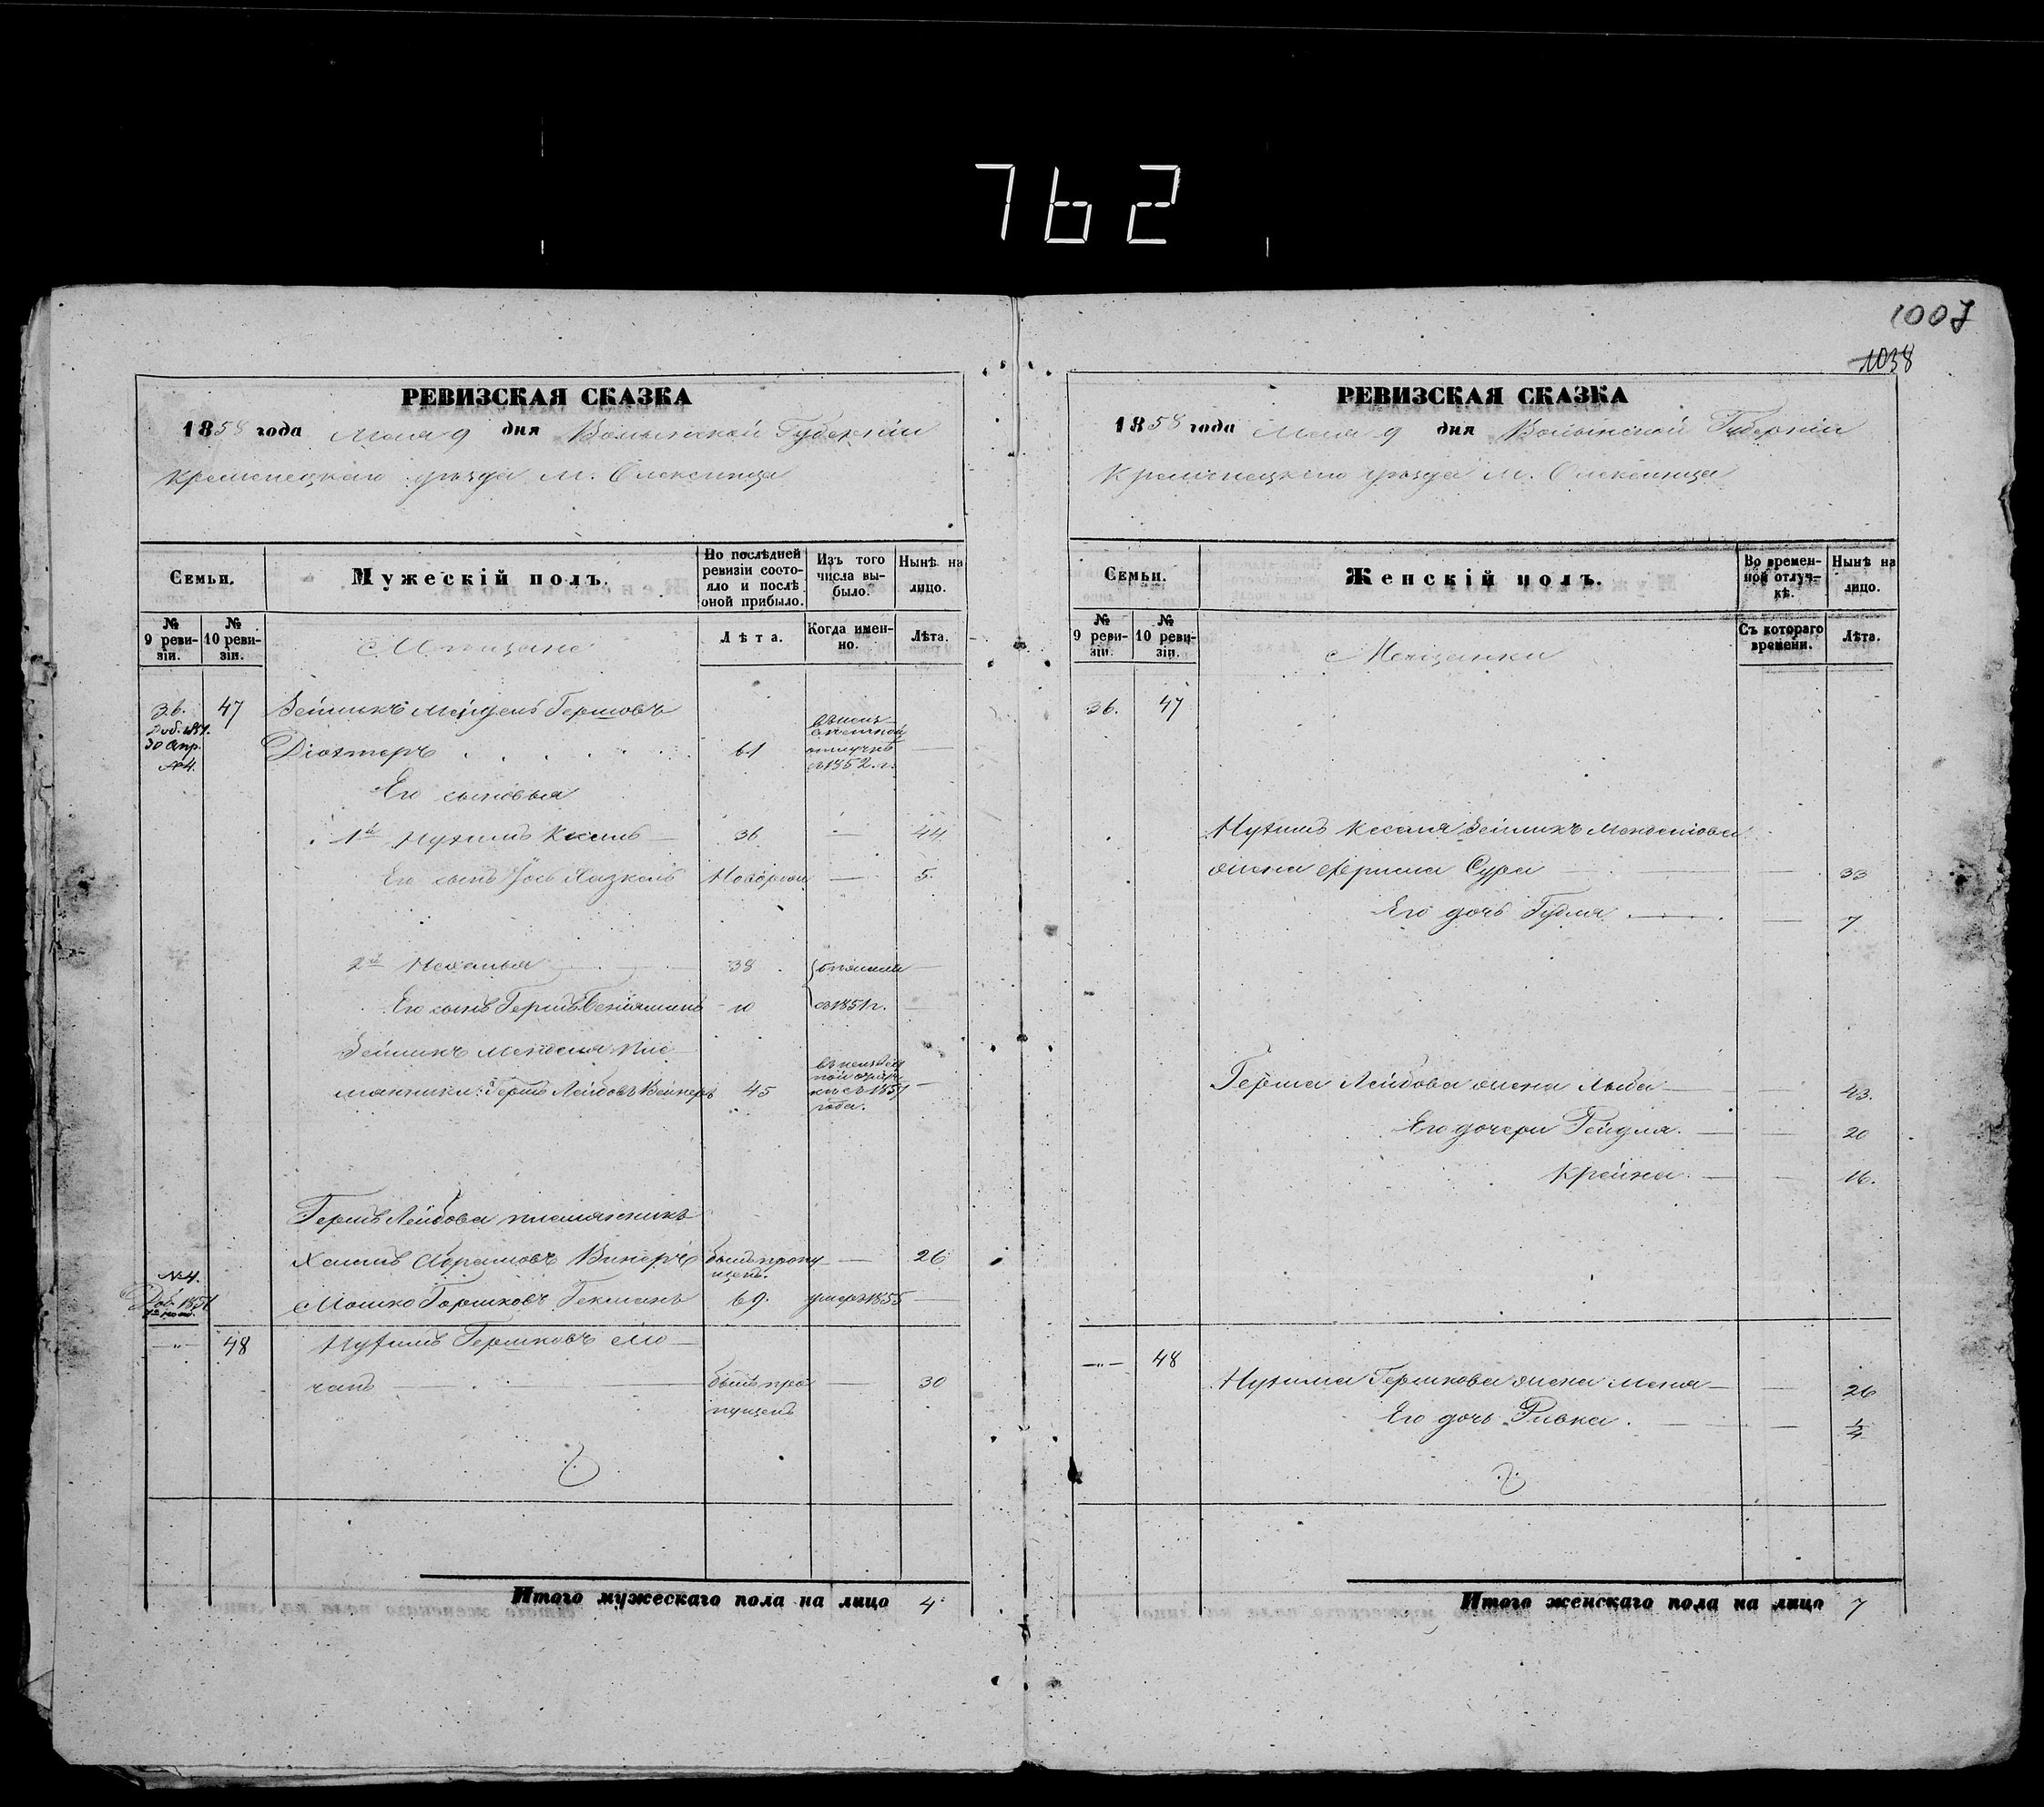 762
1007
1038
РЕВИЗСКАЯ СКАЗКА
1858 года Мая 9 дня Волынской Губерніи
Кременецкаго уѣзда м. Олексинца
Семьи.
Мужескій полъ.
По послѣдней ревизіи состо-
яло и послѣ
оной прибыло.
Изъ того
числа вы-
было.
Нынѣ на
лицо.
№
9 реви-
зіи.
№
10 реви-
зіи.
Мѣщане
Лѣта.
Когда имен-
но.
Лѣта.
36. 47 Зейликъ Мендель Гершовъ
Доб. 1851.
30 Апр.
№4.
61
отлучкѣ
съ 1852 г.
Его сыновья
1й Нухимъ Кисель 36 — 44
Его сынъ Іось Хазкель Новорож — 5
2й Нехемья 38
Его сынъ Гершъ Беніяминъ 10 съ 1851 г.
Зейликъ Менделя пле-
мянники: Гершъ Лейбовъ Вейнеръ 45
съ 1851
года.
Гершъ Лейбова племянникъ
Хаимъ Абрамовъ Винеръ былъ пропу
щенъ. — 26
№4.
Доб. 1851
Мошко Гершковъ Гекманъ 69. умеръ 1855 —
—"— 48 Нухимъ Гершковъ Мо
чанъ — былъ про
пущенъ — 30
Итого мужескаго пола на лицо 4
РЕВИЗСКАЯ СКАЗКА
1858 года Мая 9 дня Волынской Губерніи
Кременецкаго уѣзда м. Олексинца
Семьи.
Женскій полъ.
Во времен-
ной отлуч-
кѣ.
Нынѣ на
лицо.
№
9 реви-
зіи.
№
10 реви-
зіи.
Мѣщанки
Съ котораго
времени.
Лѣта.
36. 47
Нухимъ Киселя Зейликъ Менделова
жена Фрима Сура — 33
Его дочь Гудля — 7
Герша Лейбова жена Лыба — 43.
Его дочери Рейдля — 20
Крейна — 16.
—"— 48
Нухима Гершкова жена Меня — 26
Его дочь Ривка — 1/4
Итого женскаго пола на лицо 7